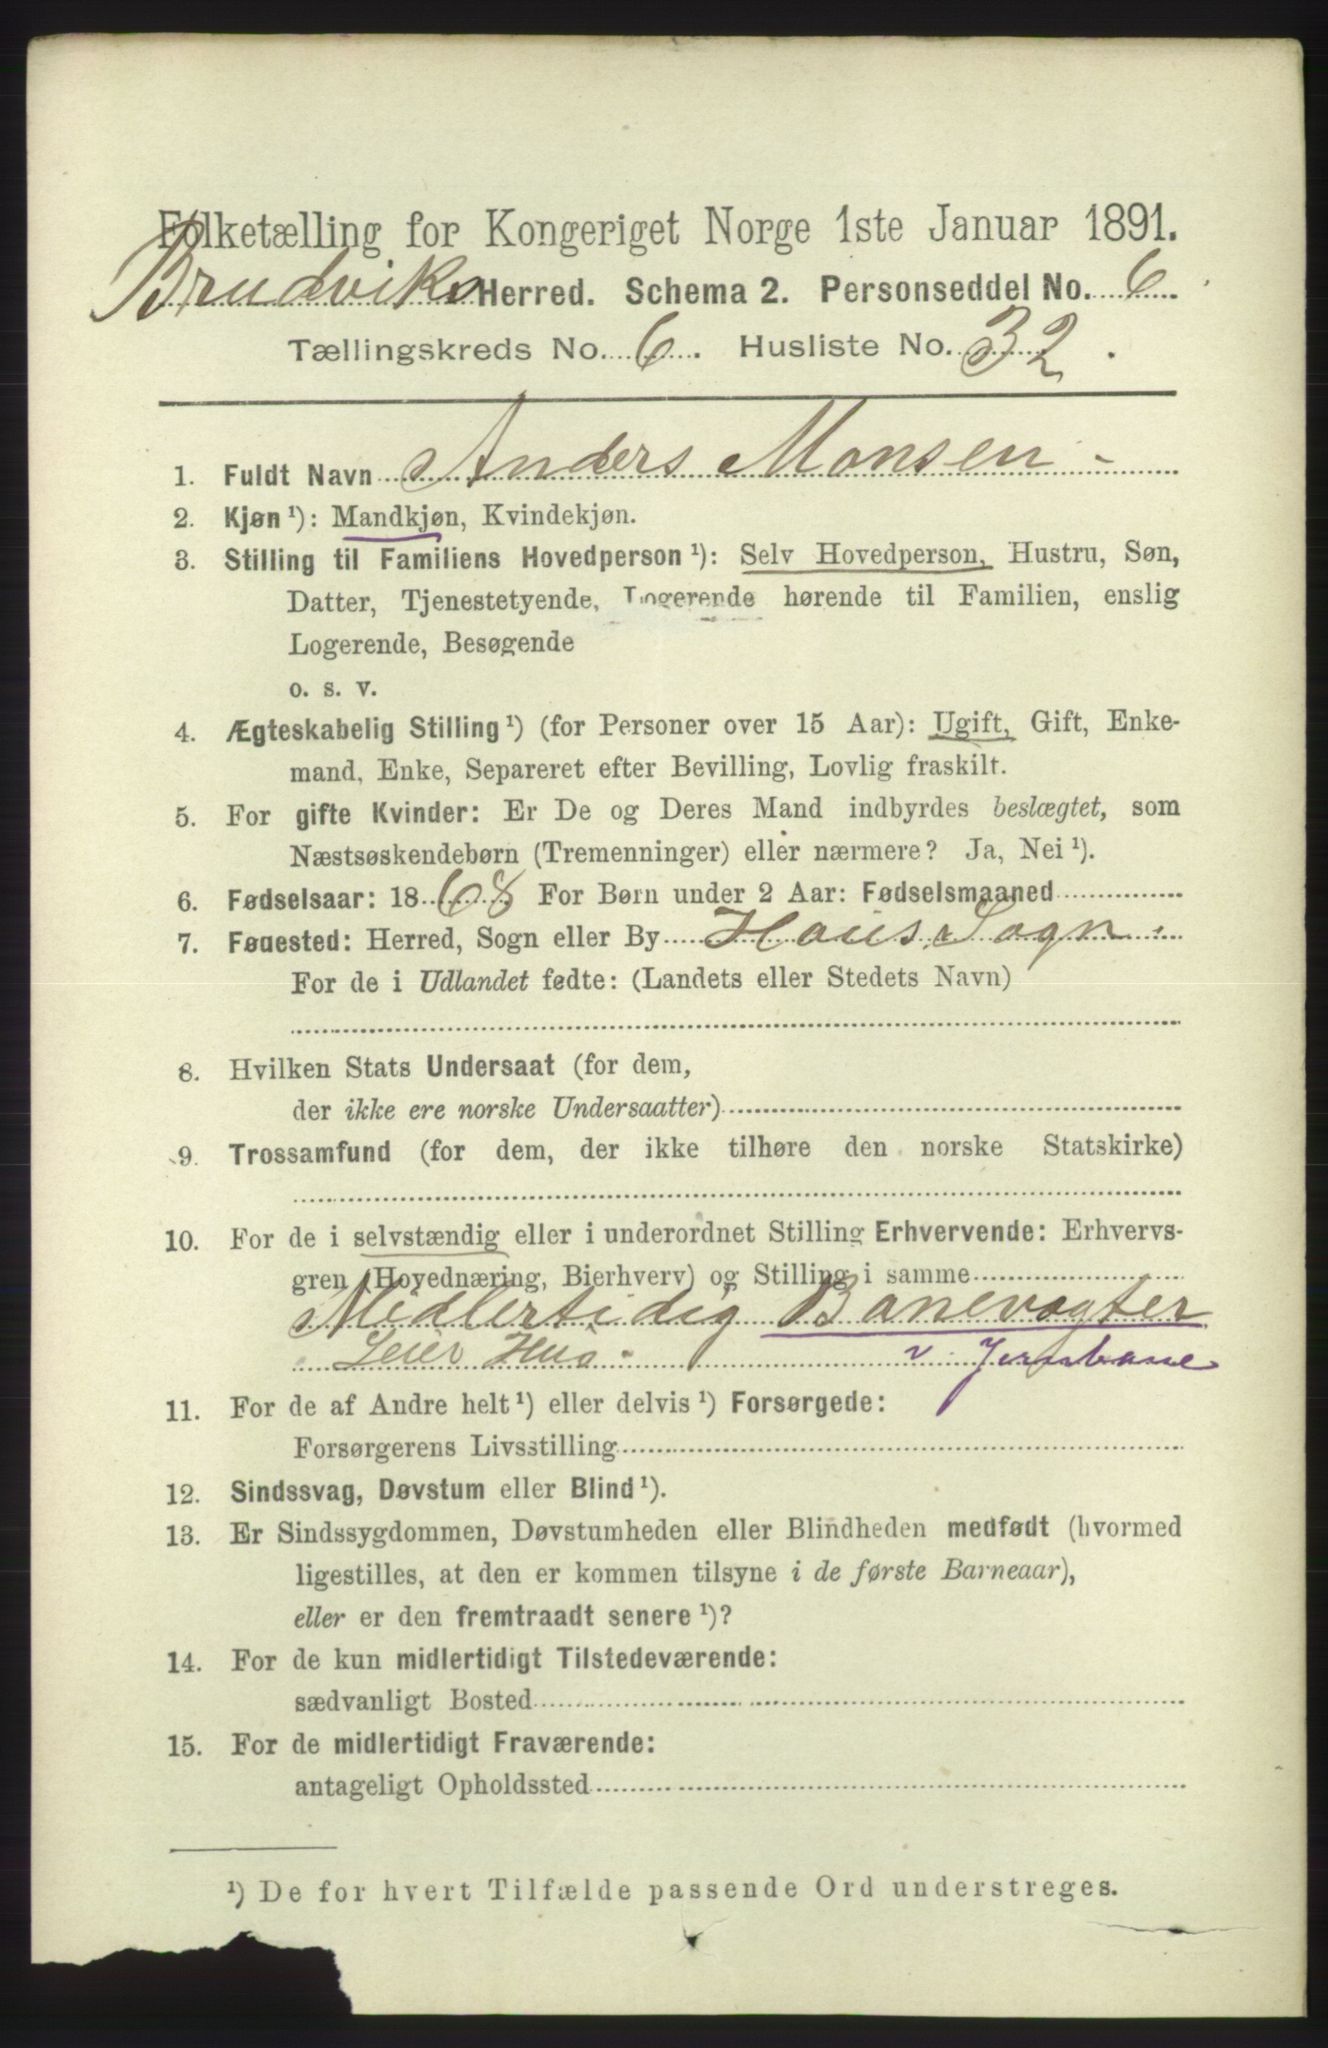 Folketælling for Kongeriget Norge 1ste Januar 1891.
Brudviks Herred. Schema 2. Personseddel No. 6
Tællingskreds No. 6. Husliste No. 32.
1. Fuldt Navn Anders Monsen -
2. Kjøn ¹): Mandkjøn, Kvindekjøn.
3. Stilling til Familiens Hovedperson ¹): Selv Hovedperson, Hustru, Søn,
Datter, Tjenestetyende, Logerende hørende til Familien, enslig
Logerende, Besøgende
o. s. v.
4. Ægteskabelig Stilling ¹) (for Personer over 15 Aar): Ugift, Gift, Enke-
mand, Enke, Separeret efter Bevilling, Lovlig fraskilt.
5. For gifte Kvinder: Er De og Deres Mand indbyrdes beslægtet, som
Næstsøskendebørn (Tremenninger) eller nærmere? Ja, Nei ¹).
6. Fødselsaar: 1868 For Børn under 2 Aar: Fødselsmaaned
7. Føuested: Herred, Sogn eller By Haus Sogn.
For de i Udlandet fødte: (Landets eller Stedets Navn)
8. Hvilken Stats Undersaat (for dem,
der ikke ere norske Undersaatter)
9. Trossamfund (for dem, der ikke tilhøre den norske Statskirke)
10. For de i selvstændig eller i underordnet Stilling Erhvervende: Erhvervs-
gren (Hovednæring, Bierhverv) og Stilling i samme
Midlertidig Banevogter
Leier Hus. v. Jernbane
11. For de af Andre helt ¹) eller delvis ¹) Forsørgede:
Forsørgerens Livsstilling
12. Sindssvag, Døvstum eller Blind ¹).
13. Er Sindssygdommen, Døvstumheden eller Blindheden medfødt (hvormed
ligestilles, at den er kommen tilsyne i de første Barneaar),
eller er den fremtraadt senere ¹)?
14. For de kun midlertidigt Tilstedeværende:
sædvanligt Bosted
15. For de midlertidigt Fraværende:
antageligt Opholdssted
¹) De for hvert Tilfælde passende Ord understreges.